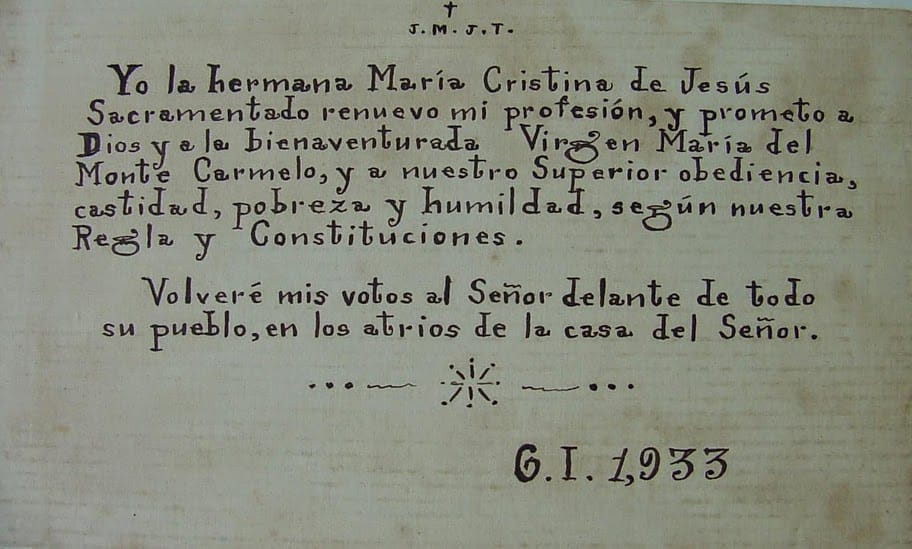 †
J.M.J.T.
Yo la hermana María Cristina de Jesús
Sacramentado renuevo mi profesión, y prometo a
Dios y a la bienaventurada Virgen María del
Monte Carmelo, y a nuestro Superior obediencia,
castidad, pobreza y humildad, según nuestra
Regla y Constituciones.
Volveré mis votos al Señor delante de todo
su pueblo, en los atrios de la casa del Señor.
6.I.1,933